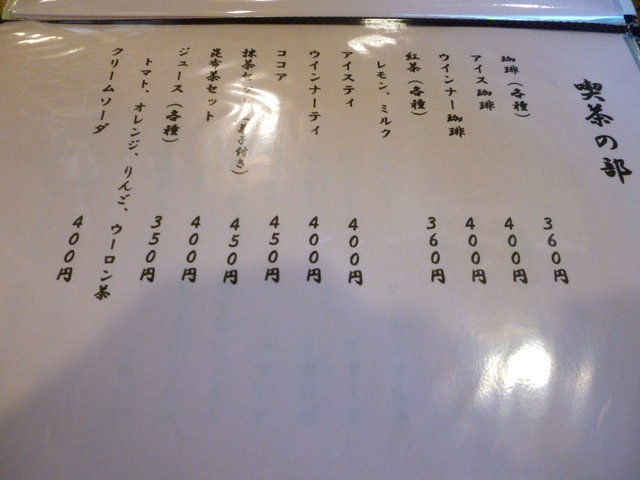 喫茶の部
珈琲（各種） 360円
アイス珈琲 400円
ウインナー珈琲 400円
紅茶（各種） 360円
レモン、ミルク
アイスティ 400円
ウインナーティ 400円
ココア 450円
抹茶セット（菓子付き） 450円
昆布茶セット 400円
ジュース（各種） 350円
トマト、オレンジ、りんご、ウーロン茶
クリームソーダ 400円